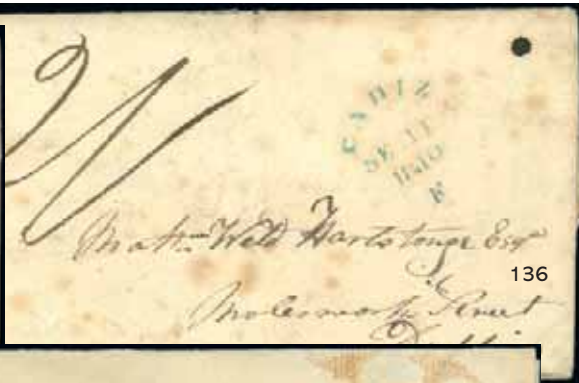 CADIZ
SE 11
1810
F
Matt:w Weld Hartstonge Esqr
136
Molesworth Street
Dublin